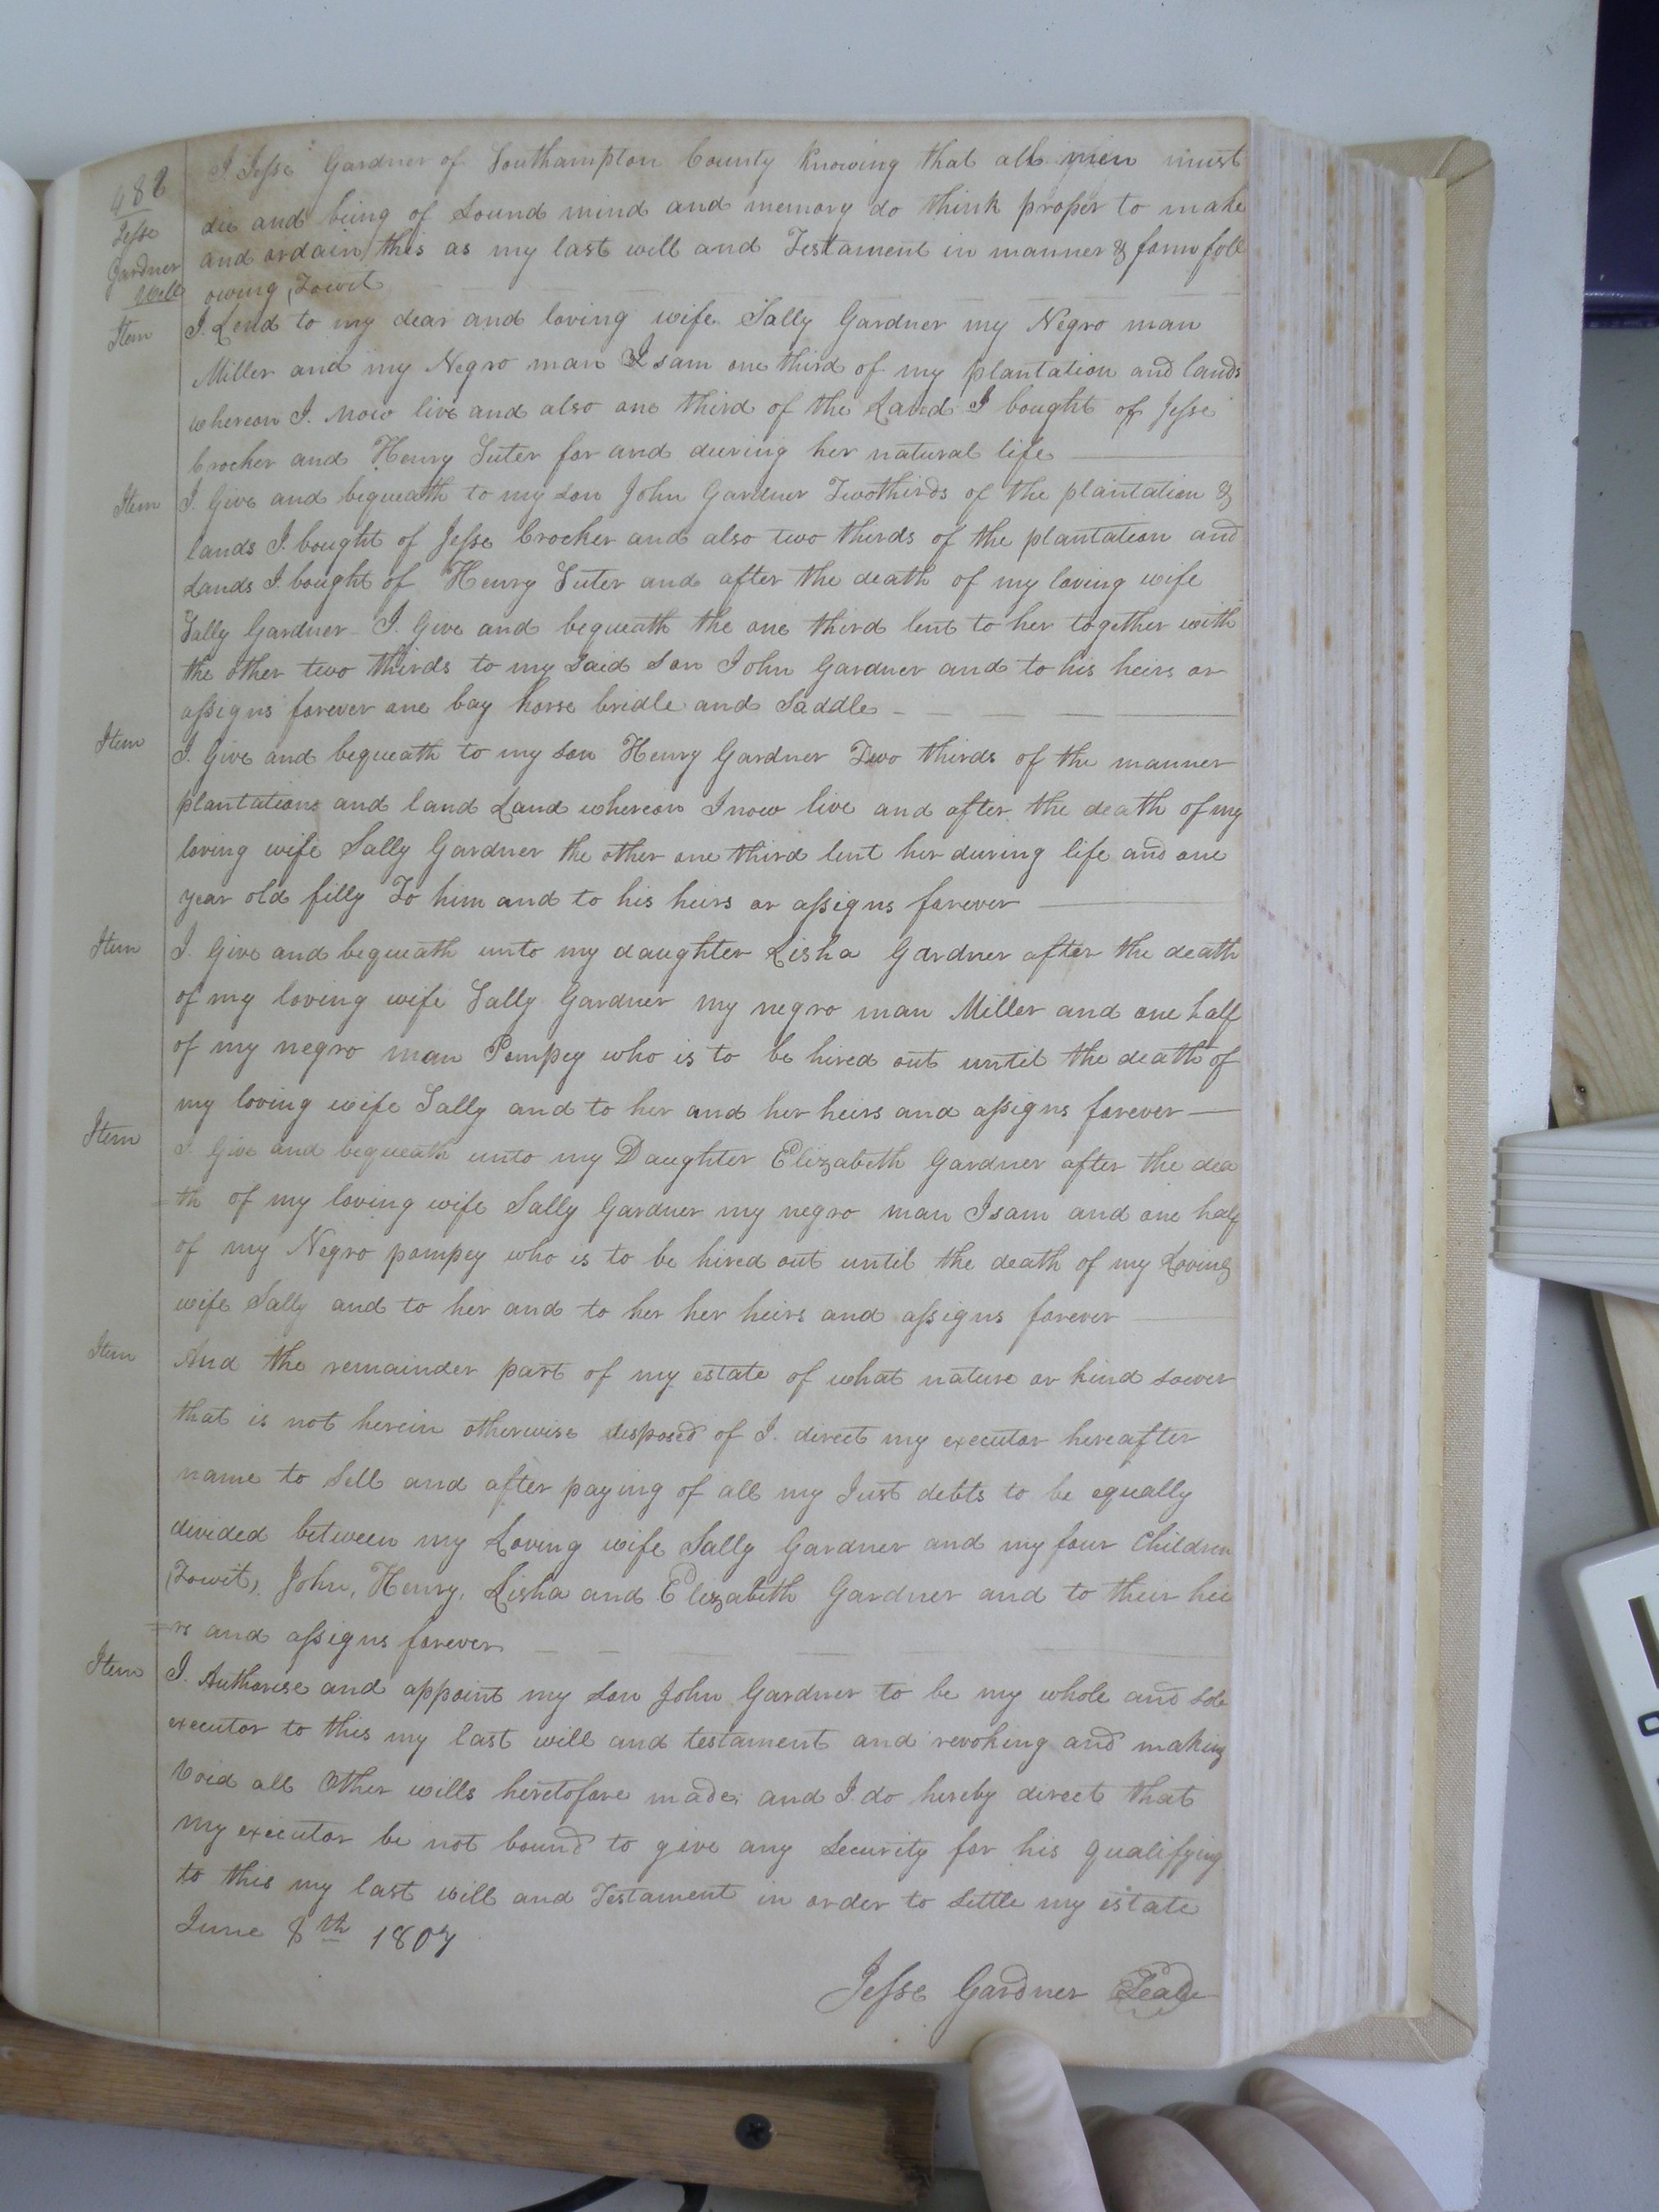 488
Jesse
Gardner
Will
I Jesse Gardner of Southampton County Knowing that all men must
die and being of sound mind and memory do think proper to make
and ordain this as my last will and Testament in manner & form foll
owing, Towit
Item I Lend to my dear and loving wife Sally Gardner my Negro man
Miller and my Negro man Isam one third of my plantation and lands
whereon I now live and also one third of the Land I bought of Jesse
Crocker and Henry Suter for and during her natural life
Item I Give and bequeath to my son John Gardner Twothirds of the plantation &
lands I bought of Jesse Crocker and also two thirds of the plantation and
Lands I bought of Henry Suter and after the death of my loving wife
Sally Gardner I Give and bequeath the one third lent to her together with
the other two thirds to my said son John Gardner and to his heirs or
assigns forever one bay horse bridle and Saddle
Item I Give and bequeath to my son Henry Gardner Two thirds of the manner
plantations and land Land whereon I now live and after the death of my
loving wife Sally Gardner the other one third lent her during life and one
year old filly To him and to his heirs or assigns forever
Item I Give and bequeath unto my daughter Lisha Gardner after the death
of my loving wife Sally Gardner my negro man Miller and one half
of my negro man Pompey who is to be hired out until the death of
my loving wife Sally and to her and her heirs and assigns forever
Item I Give and bequeath unto my Daughter Elizabeth Gardner after the dea
=th of my loving wife Sally Gardner my negro man Isam and one half
of my Negro pompey who is to be hired out until the death of my Loving
wife Sally and to her and to her her heirs and assigns forever
Item And the remainder part of my estate of what nature or kind soever
that is not herein otherwise disposed of I direct my executor hereafter
name to Sell and after paying of all my Just debts to be equally
divided between my Loving wife Sally Gardner and my four Children
(Towit), John, Henry, Lisha and Elizabeth Gardner and to their hei
=rs and assigns forever
Item I Authorise and appoint my son John Gardner to be my whole and sole
executor to this my last will and testament and revoking and making
Void all Other wills heretofore made, and I do hereby direct that
my executor be not bound to give any Security for his qualifying
to this my last will and Testament in order to settle my estate
June 8th 1807
Jesse Gardner Seal